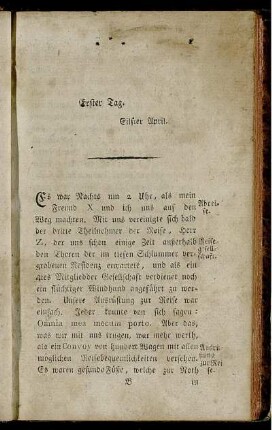 Erster Tag.
Eilfter April.
Es war Nachts um 2 Uhr, als mein
Freund X und ich uns auf den Abrei-
Weg machten. Mit uns vereinigte sich bald se.
der dritte Theilnehmer der Reise, Herr
Z, der uns schon einige Zeit außerhalb Reise-
den Thoren der im tiefen Schlummer ver- gesell-
grabenen Residenz erwartet, und als ein schaft.
4tes Mitglied der Gesellschaft verdienet noch
ein flüchtiger Windhund angeführt zu wer-
den. Unsere Ausrüstung zur Reise war
einfach. Jeder konnte von sich sagen:
Omnia mea mecum porto. Aber das,
was wir mit uns trugen, war mehr werth,
als ein Convoy von hundert Wagen mit allen Ausrü-
möglichen Reisebequemlichkeiten versehen. stung
Es waren gesunde Füße, welche zur Noth zur Rei-
se.
B
in